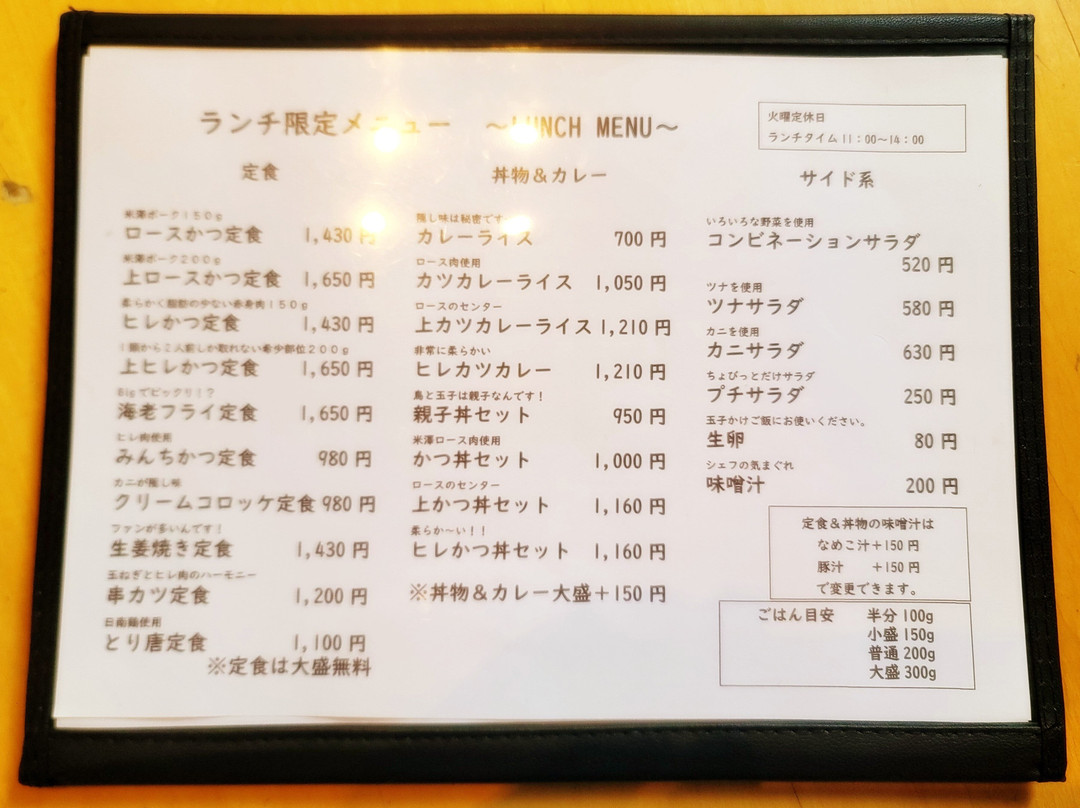 ランチ限定メニュー　～LUNCH MENU～
火曜定休日
ランチタイム 11：00～14：00
定食
米澤ポーク150g
ロースかつ定食 1,430 円
米澤ポーク200g
上ロースかつ定食 1,650 円
柔らかく脂肪の少ない赤身肉150g
ヒレかつ定食 1,430 円
1頭から2人前しか取れない希少部位200g
上ヒレかつ定食 1,650 円
Bigでビックリ！？
海老フライ定食 1,650 円
ヒレ肉使用
みんちかつ定食 980 円
カニが隠し味
クリームコロッケ定食 980 円
ファンが多いんです！
生姜焼き定食 1,430 円
玉ねぎとヒレ肉のハーモニー
串カツ定食 1,200 円
日南鶏使用
とり唐定食 1,100 円
※定食は大盛無料
丼物＆カレー
隠し味は秘密です
カレーライス 700 円
ロース肉使用
カツカレーライス 1,050 円
ロースのセンター
上カツカレーライス 1,210 円
非常に柔らかい
ヒレカツカレー 1,210 円
鳥と玉子は親子なんです！
親子丼セット 950 円
米澤ロース肉使用
かつ丼セット 1,000 円
ロースのセンター
上かつ丼セット 1,160 円
柔らか～い！！
ヒレかつ丼セット 1,160 円
※丼物＆カレー大盛＋150 円
サイド系
いろいろな野菜を使用
コンビネーションサラダ
520 円
ツナを使用
ツナサラダ 580 円
カニを使用
カニサラダ 630 円
ちょびっとだけサラダ
プチサラダ 250 円
玉子かけご飯にお使いください。
生卵 80 円
シェフの気まぐれ
味噌汁 200 円
定食＆丼物の味噌汁は
なめこ汁＋150 円
豚汁　＋150 円
で変更できます。
ごはん目安　半分 100g
小盛 150g
普通 200g
大盛 300g